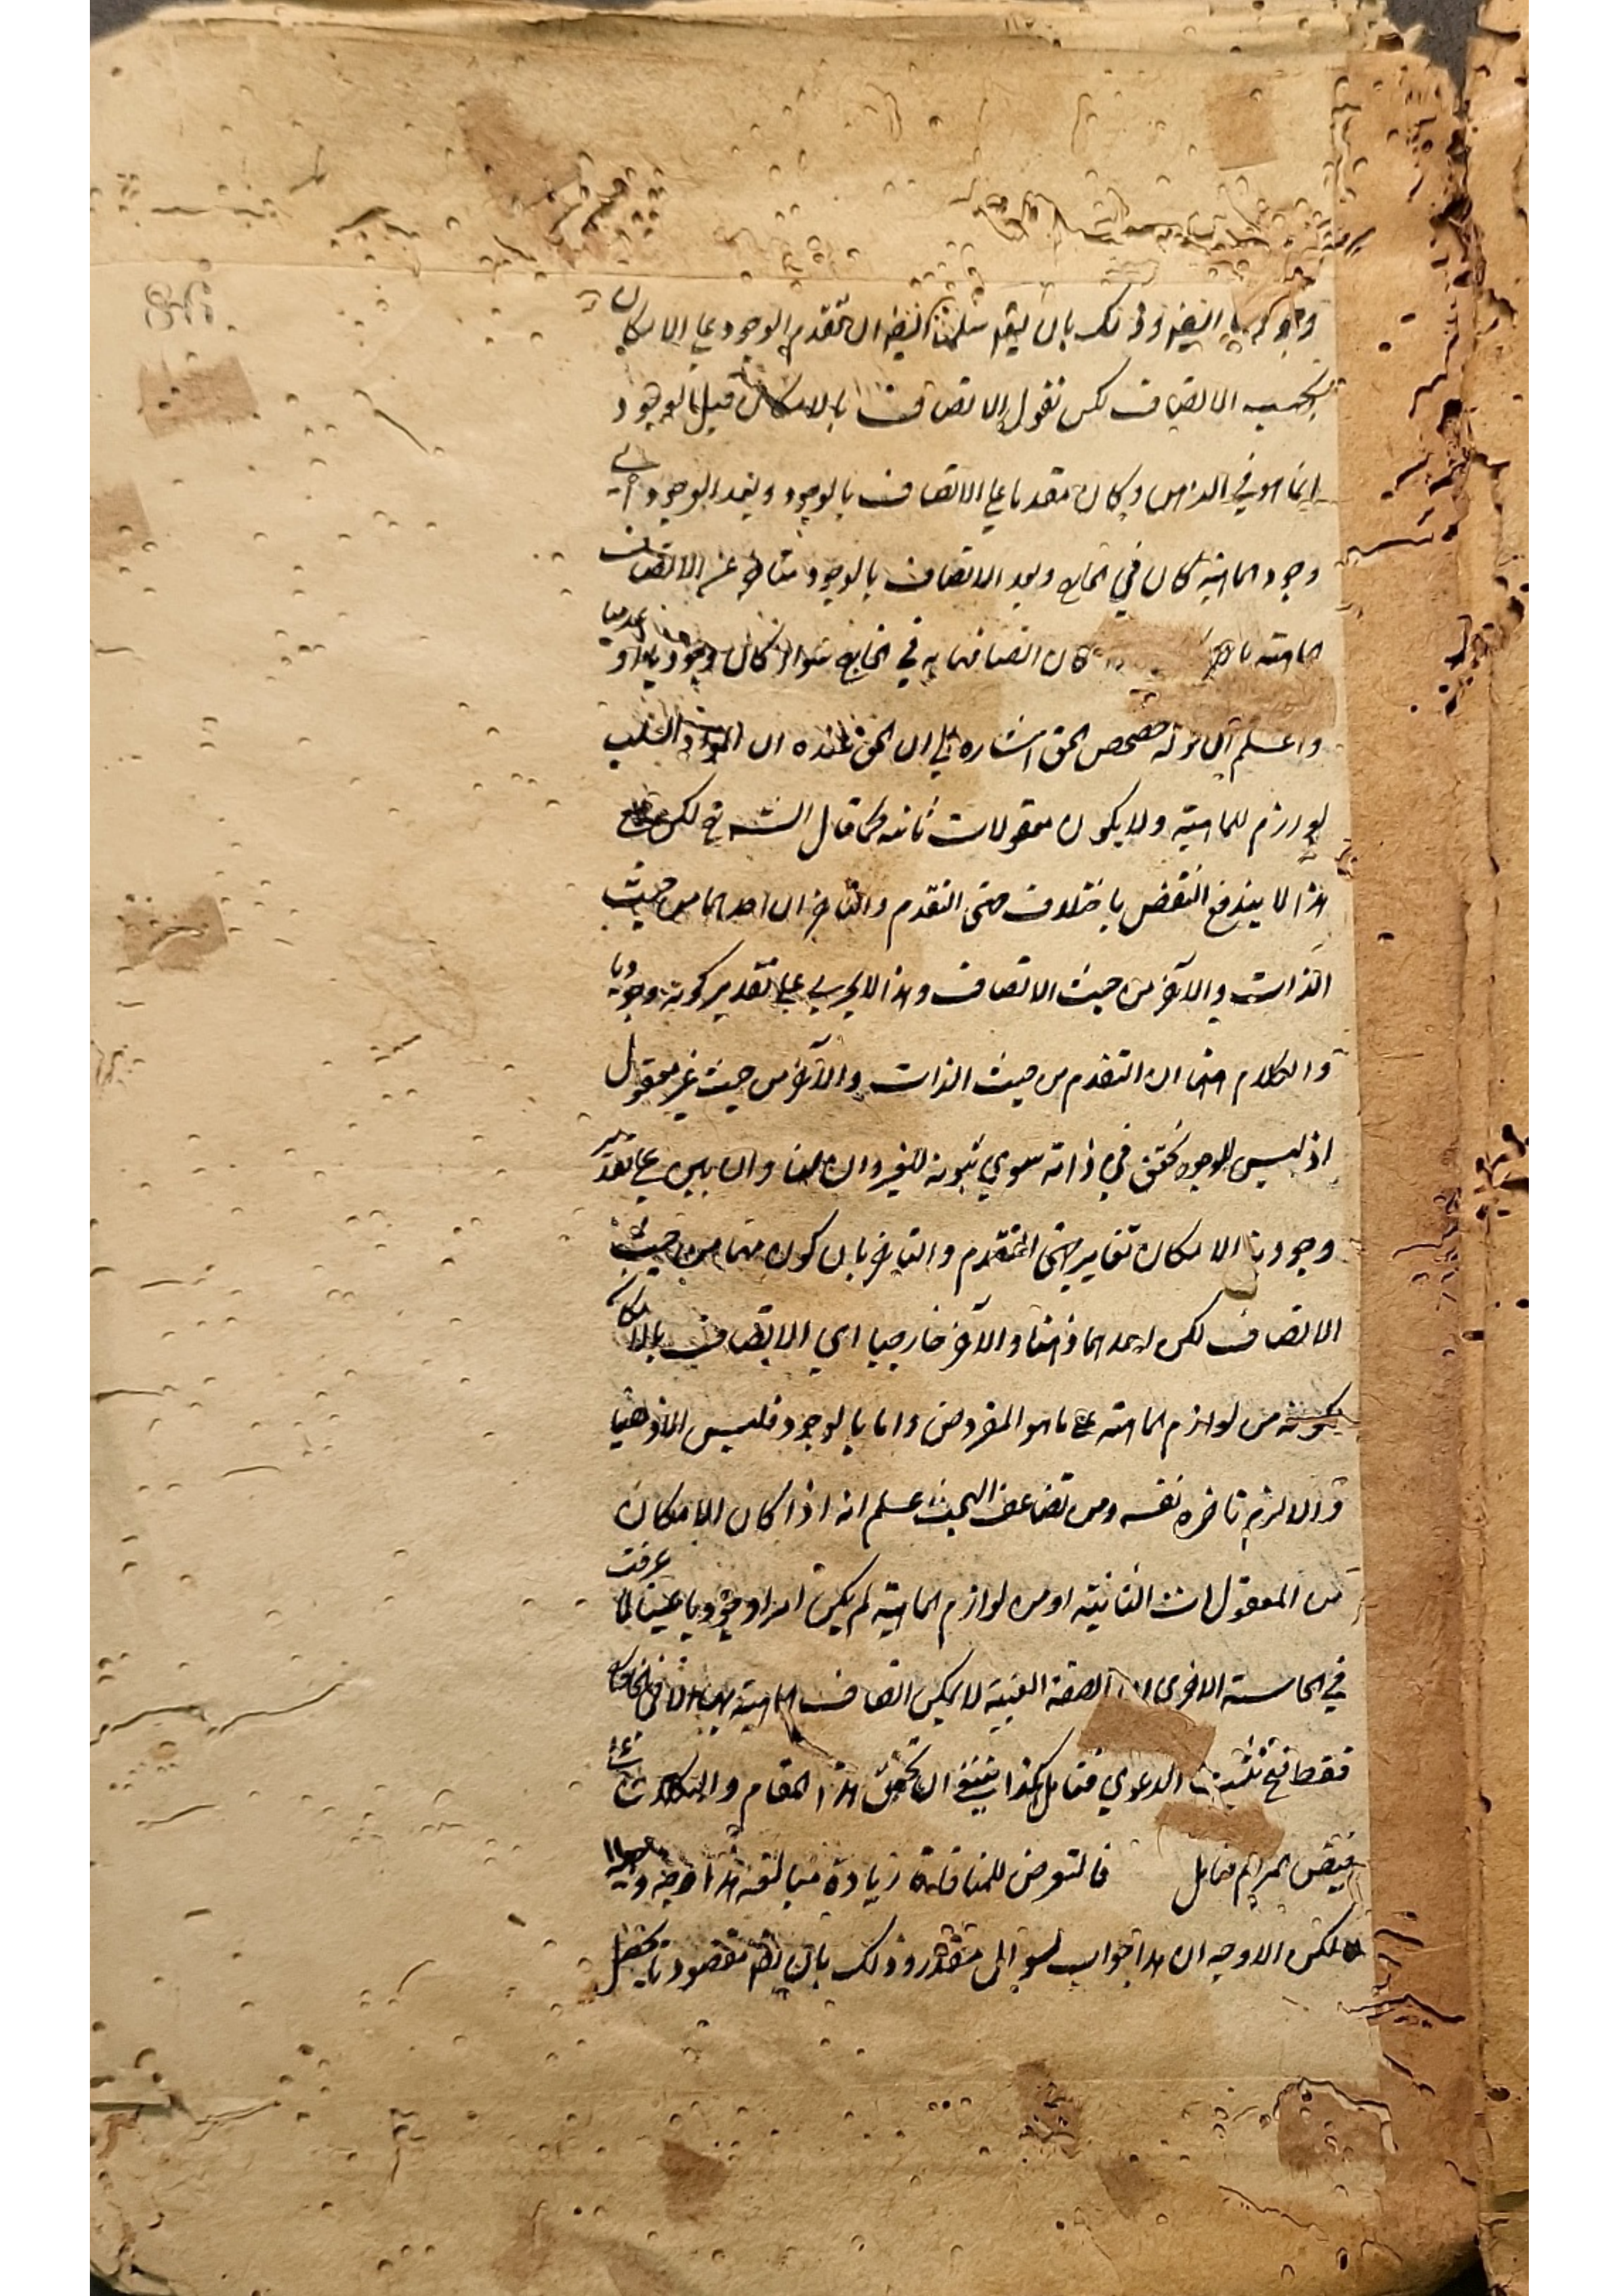 وذلك بان يقال سلمنا ان تقدم الوجود على الامكان
بحسب الاتصاف لكن نقول الاتصاف بالامكان قبل الوجود
انما هو في الذهن وكان مقدما على الاتصاف بالوجود وبعد الوجود اي
وجود الماهية كان في الخارج وبعد الاتصاف بالوجود متاخر عن الاتصاف
الماهية كان اتصافها به في الخارج سواء كان وجوديا او عدميا
واعلم ان قوله حصحص الحق اشارة الى ان الحق عنده ان المواد الثلث
لوازم للماهية ولا يكون معقولات ثانية كما قال الشيخ لكن على
هذا لا يندفع النقض باختلاف جهتي التقدم والتاخر ان احدهما من حيث
الذات والآخر من حيث الاتصاف وهذا لا يجري على تقدير كونه وجوديا
والكلام ان التقدم من حيث الذات والآخر من حيث غير معقول
اذ ليس للوجود تحقق في ذاته سوى ثبوته للغير وان بين على تقدير
وجودية الامكان تغاير جهتي التقدم والتاخر بان كون منهما من حيث
الاتصاف لكن احدهما ذهنا والآخر خارجيا اي الاتصاف بالامكان
يكونه من لوازم الماهية على ما هو المفروض واما بالوجود فليس الا ذهنيا
والا لزم تاخره نفسه ومن تضاعف البحث علم انه اذا كان الامكان
من المعقولات الثانية او من لوازم الماهية لم يكن امرا وجوديا عينيا لما عرفت
في الحاشية الاخرى ان الصفة العينية لا يمكن اتصاف الماهية بها الا في الخارج
فقط فح الدعوى فتامل هكذا ينبغي ان تحقق هذا المقام والكلام
المرام فتامل فالتعرض للمنافاة زيادة مبالغة هذا وجه وجيه
لكن الاوجه ان هذا جواب لسوال مقدر وذلك بان يقال مقصودنا يحصل